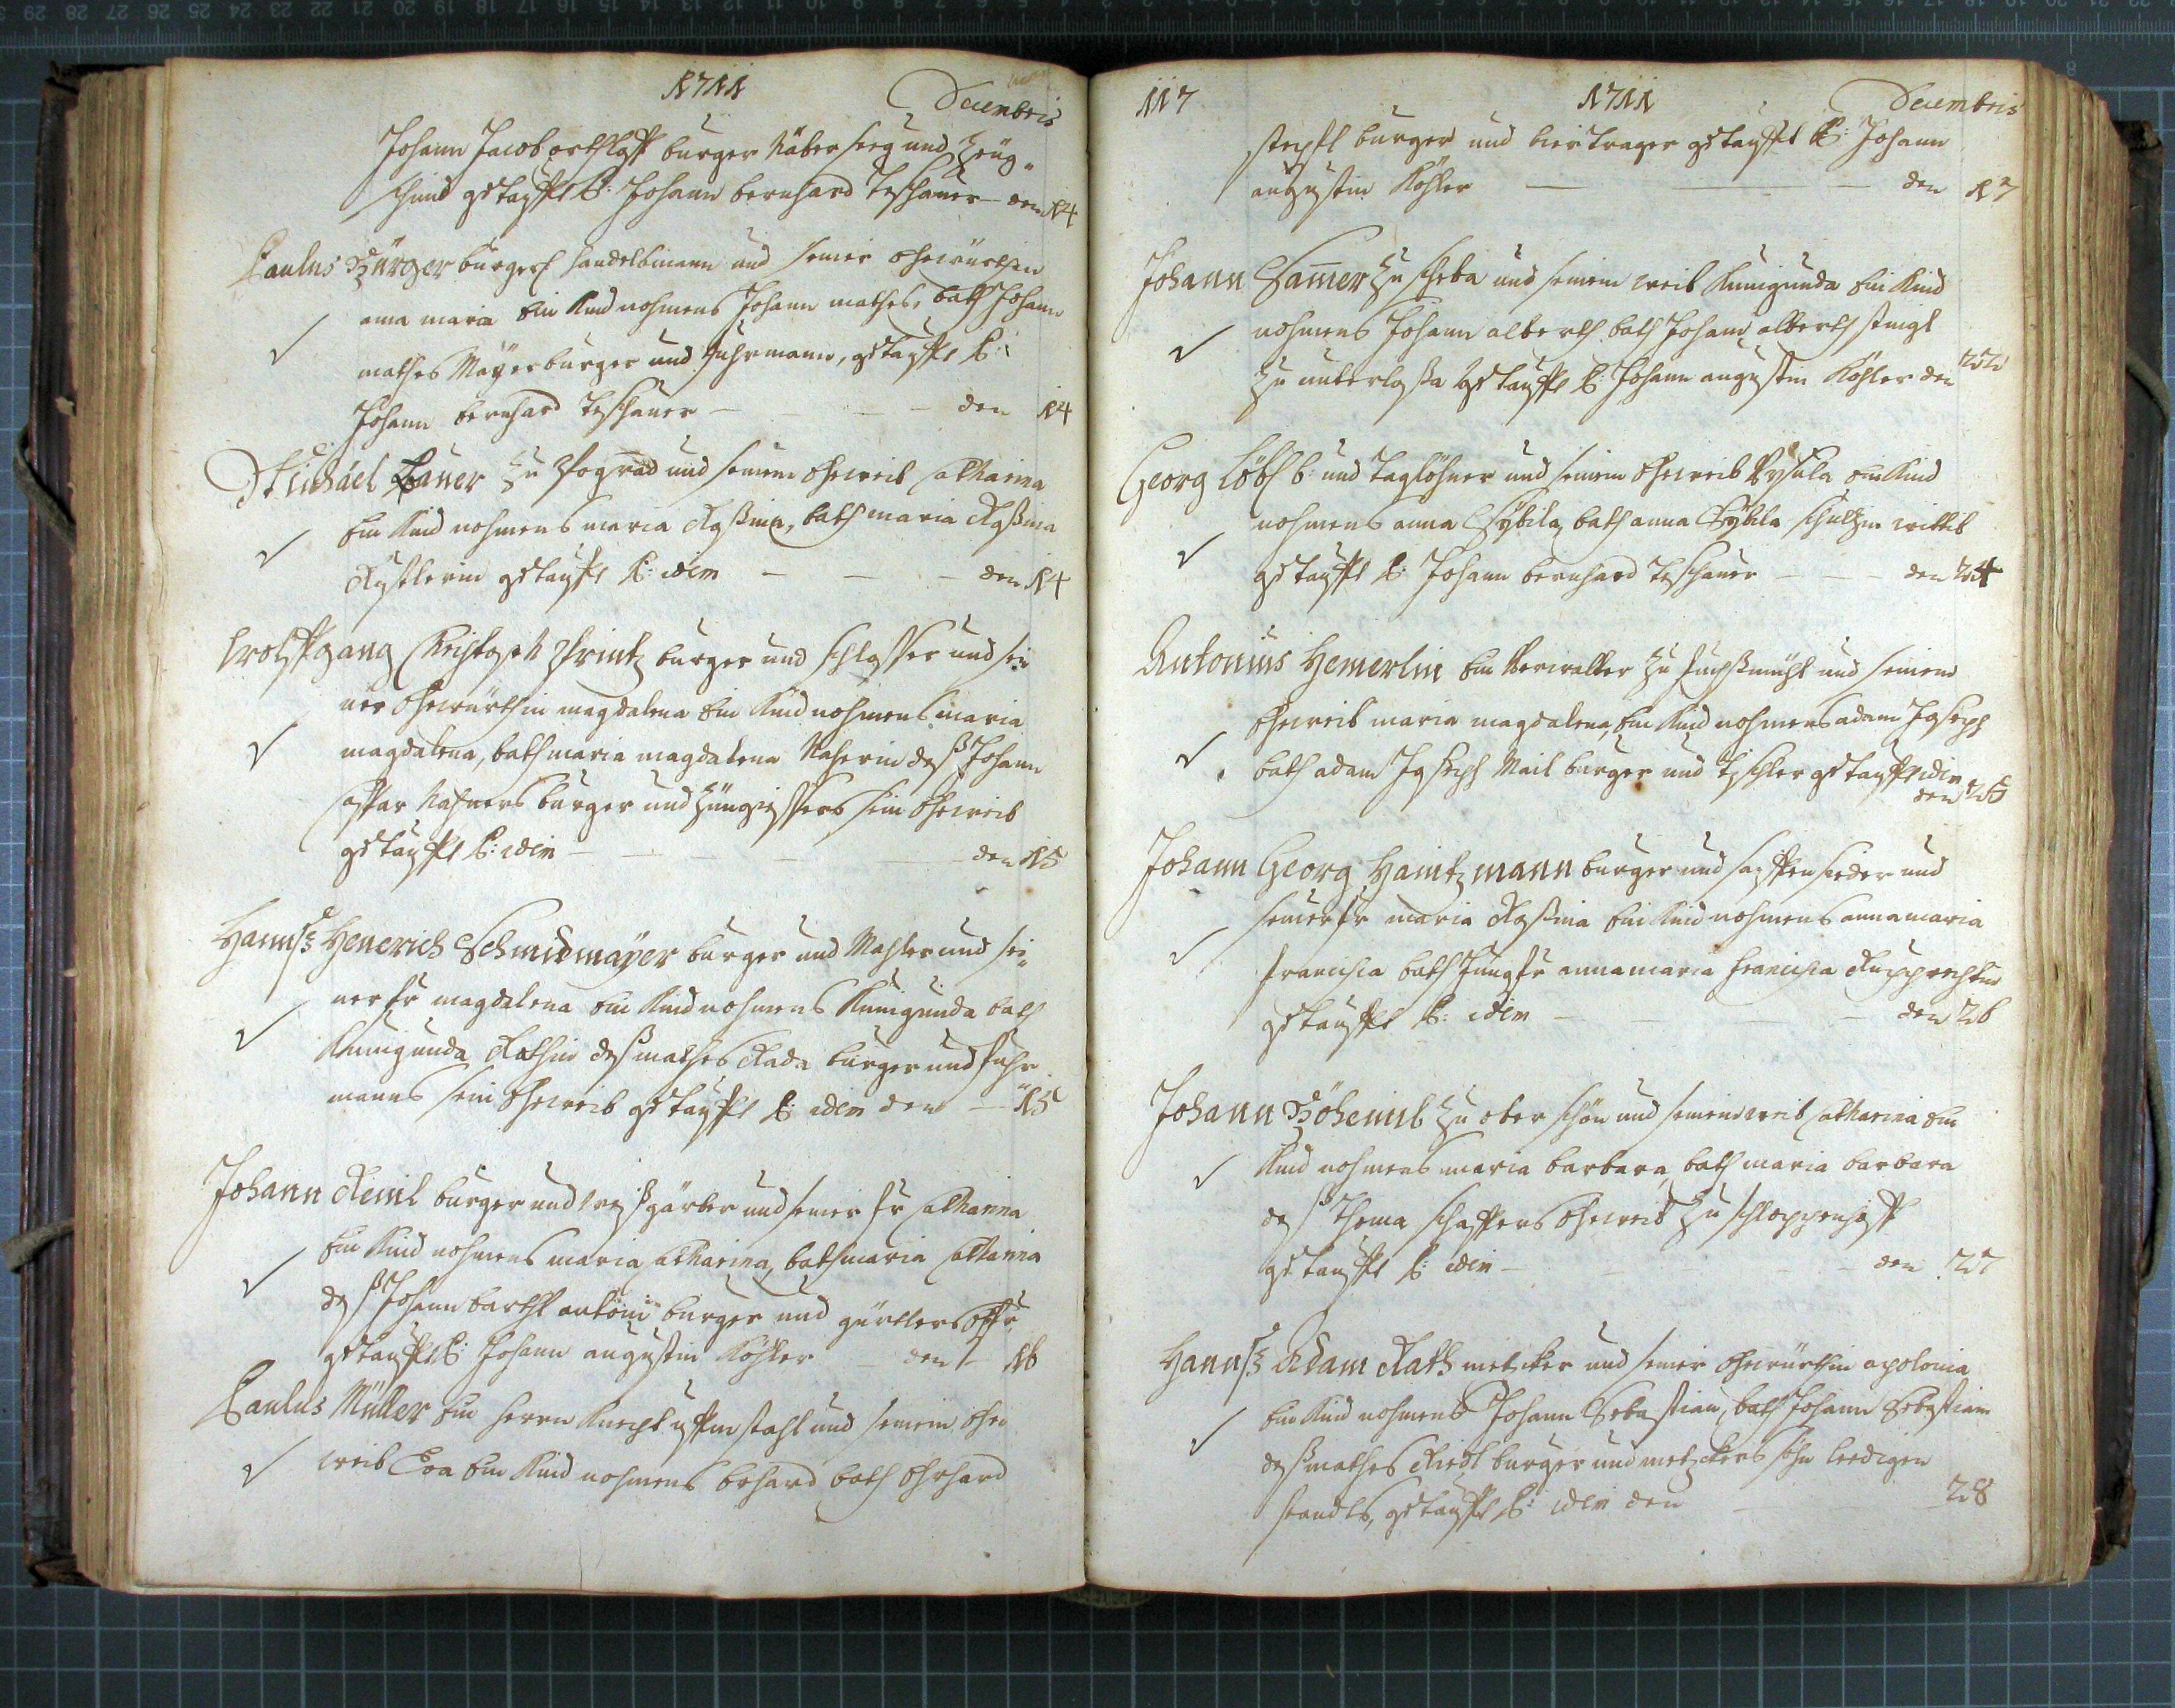 1711
Decembris
Johann Jacob burger und Zeüg¬
schmid getaufft P: Johann bernhard Teschauer den 14
Paulus Bürger burgerl handelsmann und seiner ehewürthin
anna maria Ein Kind nahmens Johann mathes, bath Johann
mathes Mayer burger und fuhrmann, getaufft P:
Johann bernhard Teschauer — den 14
Michäel Bauer Zu Pograd und seinem Eheweib Catharina
Ein Kind nahmens maria Rosina, bath maria Rosina
getaufft P: idem — — — den 14
Wolffgang Christoph Printz burger und schlosser und sei¬
ner Ehewürthin magdalena Ein Kind nahmens maria
magdalena, bath maria magdalena Nahnerin deß Johann
Caspar Nahners burger und Züngiessers sein Eheweib
getaufft P: idem — den 15
Hannß Henerich Schmidmaÿer burger und Mahler und sei¬
ner fr magdalena ein Kind nahmens Kunigunda bath
Kunigunda Rathin deß mathes Rada burger und fuhr
manns sein Eheweib getaufft P: idem den — 15
Johann Reinl burger und weißgärber und seiner fr Catharina
Ein Kind nahmens maria Catharina, bath maria Catharina
deß Johann barthl antoni burger und gürtlers
getaufft P: Johann augustin Köhler — den — 16
Paulus Müller Ein herrn Knecht und seinem Ehe
weib Eva Ein Kind nahmens Erhard bath Ehrhard
117
1711
Decembris
burger und biertrager getaufft P: Johann
augustin Köhler — — den 17
Johann Sam̄er Zu scheba und seinem weib Kunigunda Ein Kind
nahmens Johann alberth bath Johann alberth stingl
Zu unterlosa getaufft P: Johann augustin Köhler den 22
Georg Löbl b: und Taglöhner und seinem Eheweib Ursula ein Kind
nahmens anna Sÿbila, bath anna Sÿbila schultzin wittib
getaufft P: Johann bernhard Teschauer — — — den 24
Antonius Hemerlin Ein Verwalter Zu fuchßmühl und seinem
Eheweib maria magdalena, Ein Kind nahmens adam Joseph
bath adam Joseph Mail burger und Tischler getaufft idem
den 25
Johann Georg Haintzmann burger und saiffensieder und
seiner fr maria Rosina Ein Kind nahmens anna maria
francisca bath Jungfr anna maria francisca Rupprechtin
getaufft P: idem — — den 26
Johann Böheimb Zu oberschön und seinem weib Catharina ein
Kind nahmens maria barbara, bath maria barbara
deß Thoma schaffers Eheweib Zu schloppenhoff
getaufft P: idem — — — den 27
Hannß Adam Rath metzker und seiner Ehewürthin apolonia
Ein Kind nahmens Johann Sebastian, bath Johann Sebastian
deß mathes Riedl burger und metzkers sohn leedigen
standts, getaufft P: idem den — 28